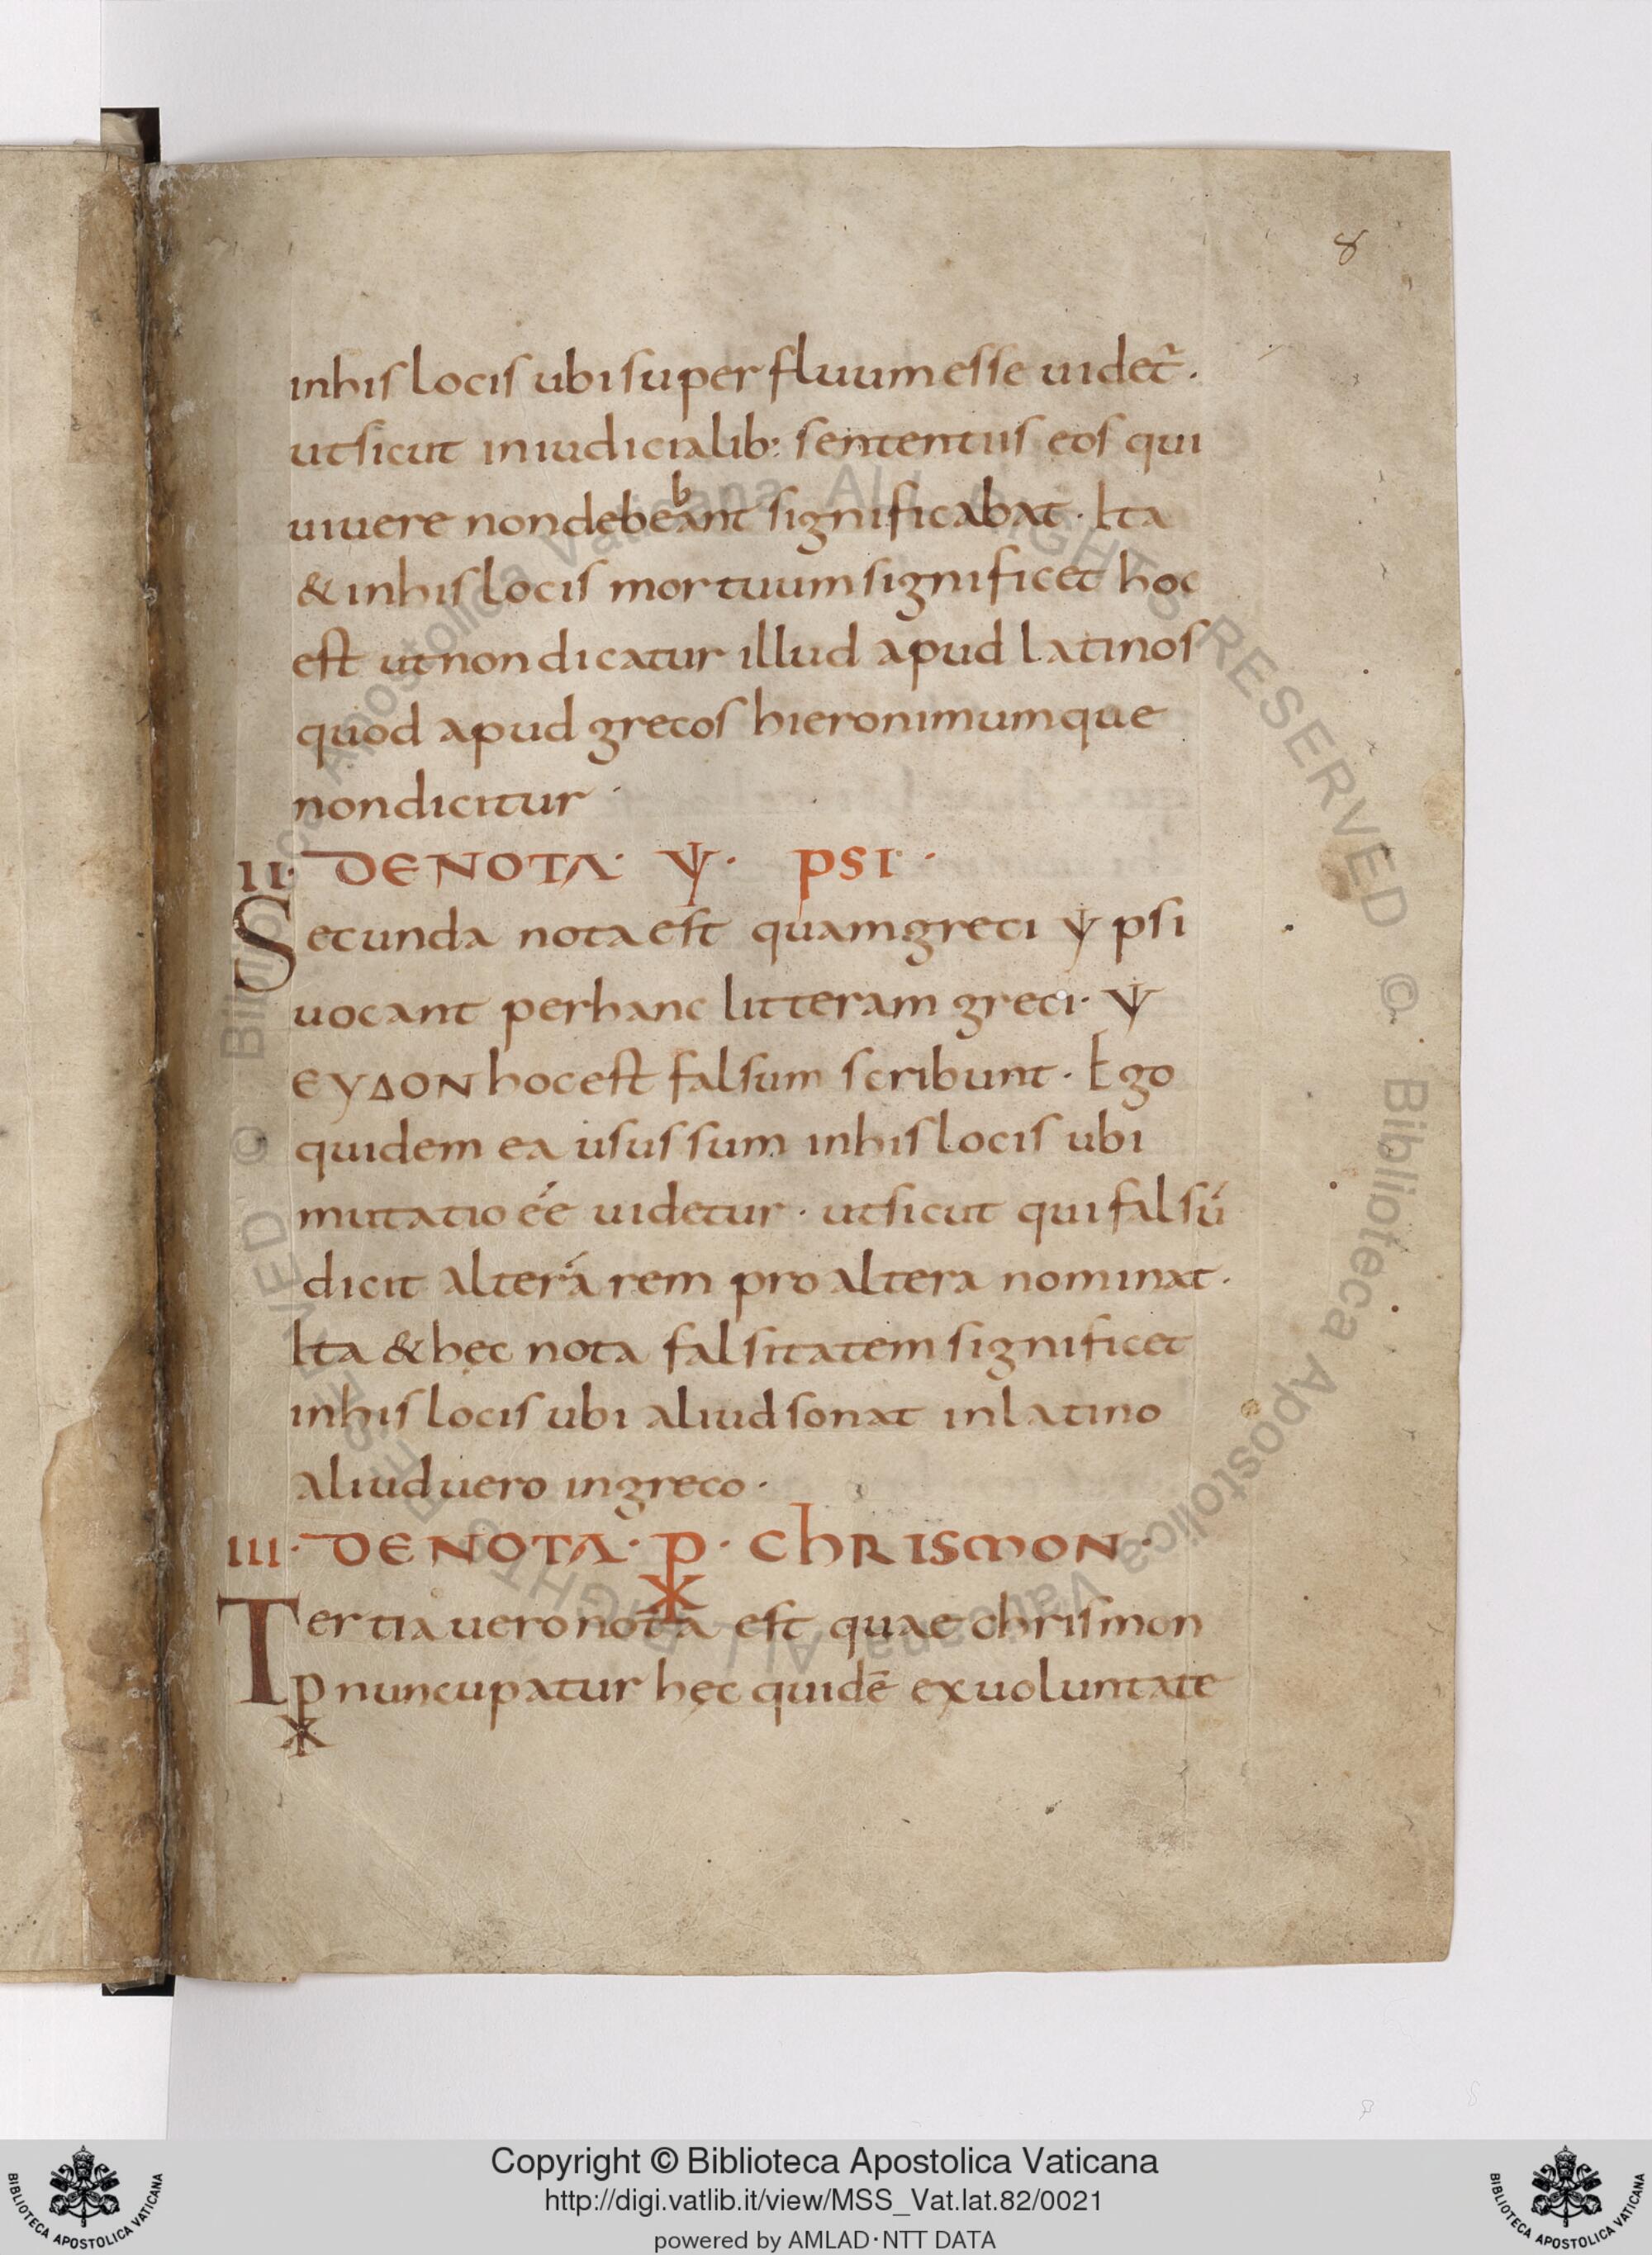 8
inhis locis ubi super fluum esse uidet᷑.
utsicut iniudicialib: sententiis eos qui
uiuere nondebeƀant significabat· Ita
& inhis locis mortuum significet hoc
est utnon dicatur illud apud latinos
quod apud grecos hieronimumque
nondicitur·
II· DE NOTA· Ψ· PSI·
Secunda nota est quam greci ψ psi
uocant perhanc litteram greci· Ψ
ЄΥΔΟΝ hocest falsum scribunt· Ego
quidem ea usus sum inhis locis ubi
mutatio ée uidetur· utsicut qui falsú
dicit alterá rem pro altera nominat·
Ita & hęc nota falsitatem significet
inhis locis ubi aliud sonat inlatino
aliud uero ingreco·
III· DE NOTA· ⳩· CHRISMON·
Tertia uero nota est quae chrismon
⳩ nuncupatur hęc quidē exuoluntate
Copyright © Biblioteca Apostolica Vaticana
http://digi.vatlib.it/view/MSS_Vat.lat.82/0021
powered by AMLAD·NTT DATA
BIBLIOTECA APOSTOLICA VATICANA
BIBLIOTECA APOSTOLICA VATICANA
© Biblioteca Apostolica Vaticana ALL RIGHTS RESERVED © Biblioteca Apostolica Vaticana ALL RIGHTS RESERVED